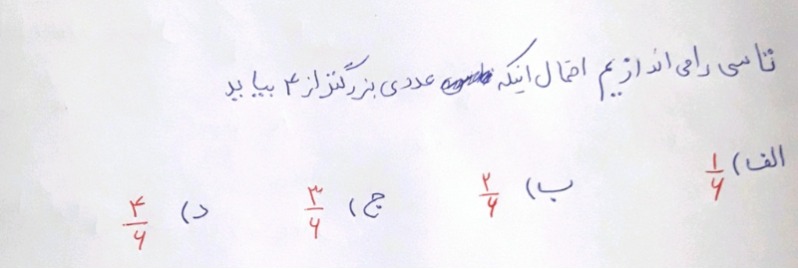 تاسی را می اندازیم احتمال اینکه عددی بزرگتر از ۴ بیاید
الف) ۱/۶ ب) ۲/۶ ج) ۳/۶ د) ۴/۶